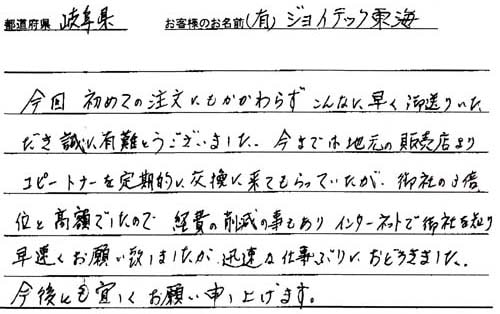 都道府県 岐阜県 お客様のお名前 (有)ジョイテック東海
今回 初めての注文にもかかわらず こんなに早く御送りいた
だき誠に有難とうございました。今までは地元の販売店より
コピートナーを定期的に交換に来てもらっていたが、御社の3倍
位と高額でしたので 経費の削減の事もあり インターネットで御社を知り
早速くお願い致しましたが 迅速な仕事ぶりに おどろきました。
今後とも宜しくお願い申し上げます。